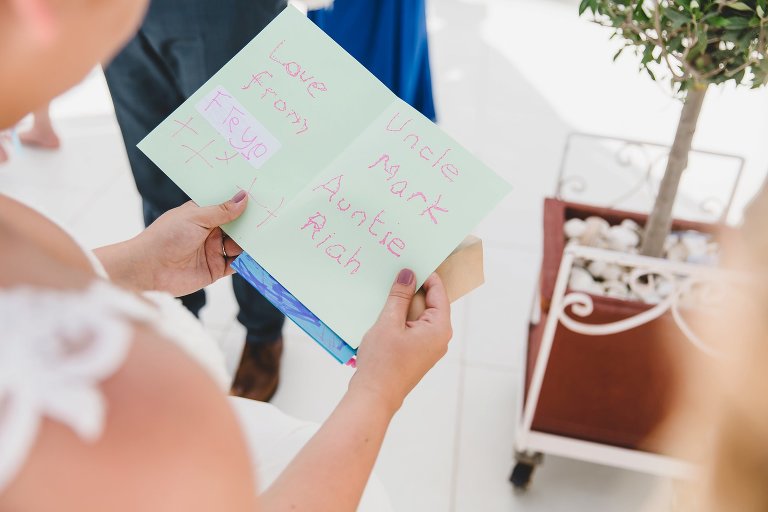 Love
from
FReyo
xxx
xx
Uncle
Mark
Auntie
Riah